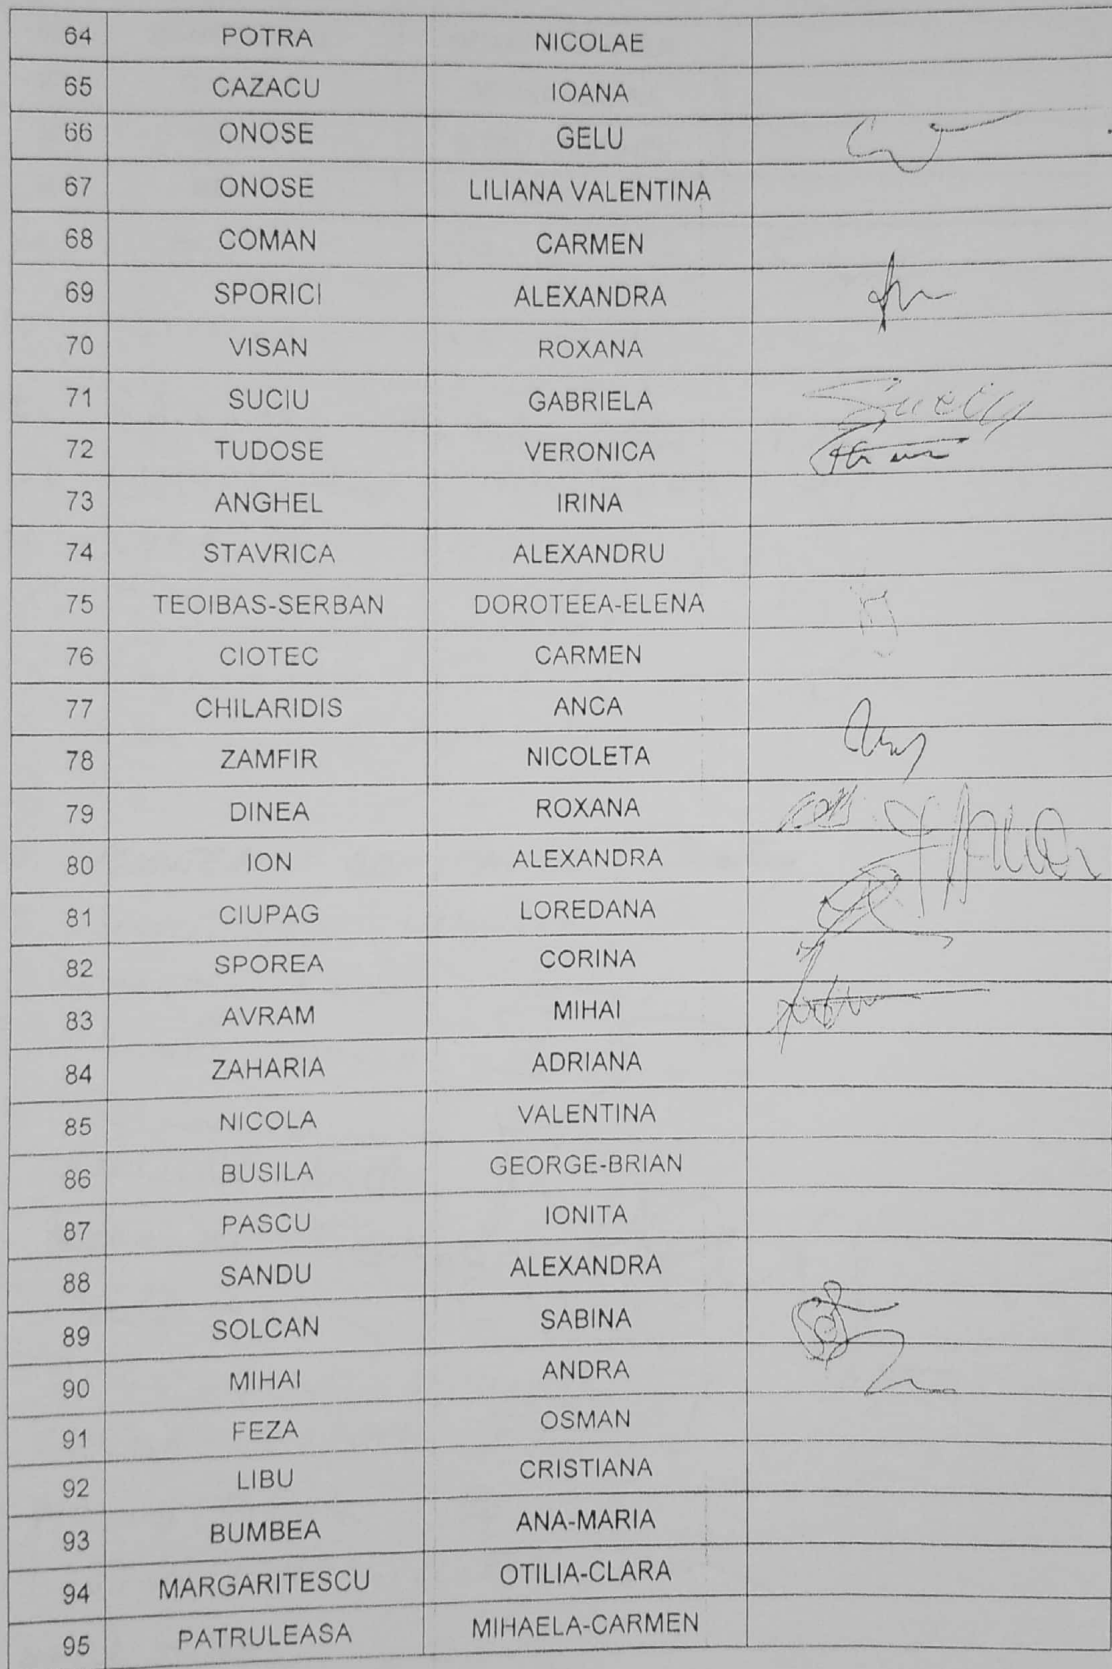 64 POTRA NICOLAE
65 CAZACU IOANA
66 ONOSE GELU
67 ONOSE LILIANA VALENTINA
68 COMAN CARMEN
69 SPORICI ALEXANDRA
70 VISAN ROXANA
71 SUCIU GABRIELA Suciu
72 TUDOSE VERONICA
73 ANGHEL IRINA
74 STAVRICA ALEXANDRU
75 TEOIBAS-SERBAN DOROTEEA-ELENA
76 CIOTEC CARMEN
77 CHILARIDIS ANCA
78 ZAMFIR NICOLETA
79 DINEA ROXANA
80 ION ALEXANDRA
81 CIUPAG LOREDANA
82 SPOREA CORINA
83 AVRAM MIHAI
84 ZAHARIA ADRIANA
85 NICOLA VALENTINA
86 BUSILA GEORGE-BRIAN
87 PASCU IONITA
88 SANDU ALEXANDRA
89 SOLCAN SABINA
90 MIHAI ANDRA
91 FEZA OSMAN
92 LIBU CRISTIANA
93 BUMBEA ANA-MARIA
94 MARGARITESCU OTILIA-CLARA
95 PATRULEASA MIHAELA-CARMEN